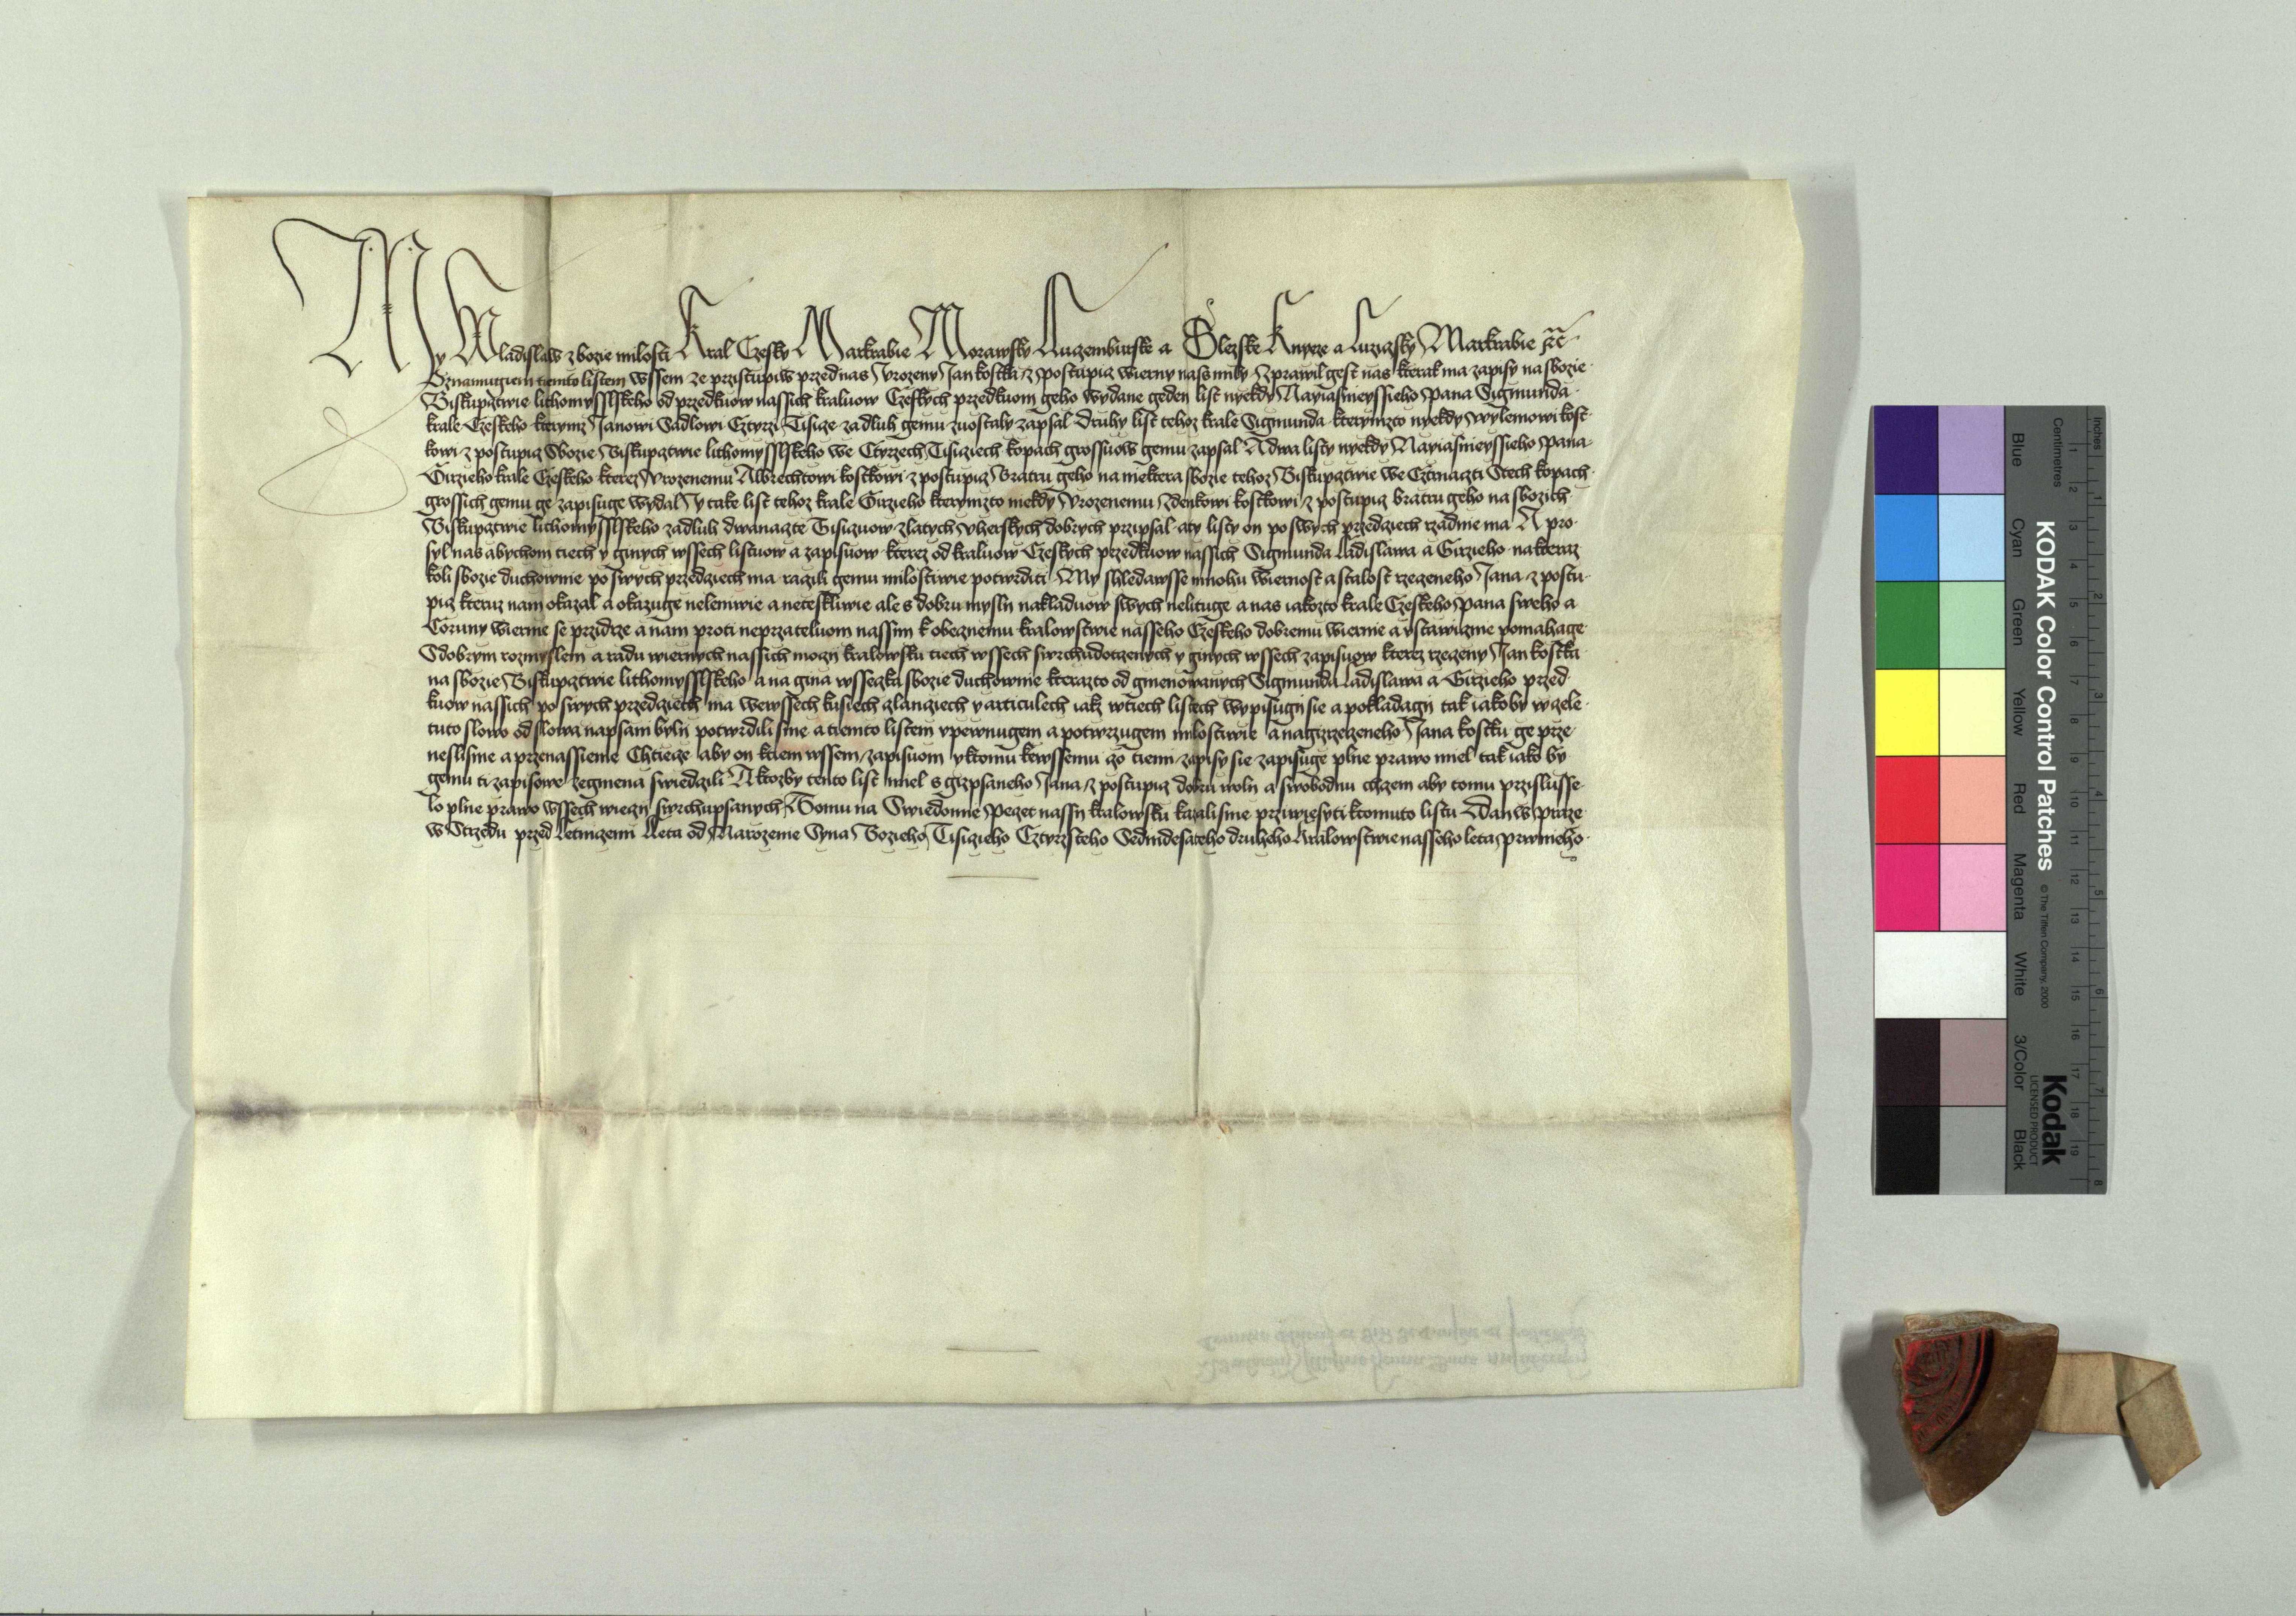 My Wladislaw z bozie milosti Kral Czesky Markrabie Morawsky Luczemburske a Slezske Knyeze a Luziczsky Markrabie etc̃
Oznamugiem tiemto listem wssem ze przistupiw przed nas Urozeny Jan kostka z postupicz wierny nass mily Zprawil gest nas kterak ma zapisy na sbozie
Biskupstwie lithomysslskeho od przedkuow nassich kraluow Czeskych przedkuom geho wydane geden list nyekdy Nayiasneyssieho Pana Sigmunda
krale Czeskeho kterymz Janowi Sadlowi Cztyrzi Tisicze za dluh gemu zuostaly zapsal Druhy list tehoz krale Sigmunda kterymzto nyekdy wylemowi kost
kowi z postupicz Sbozie Biskupstwie lithomysslskeho we Cztyrzech Tisiczech kopach grossuow gemu zapsal A dwa listy nyekdy Nayiasneyssieho Pana
Girzieho krale Czeskeho kterez Urozenemu Albrechtowi kostkowi z postupicz Bratru geho na niektera sbozie tehoz Biskupstwie we Cztrnaczti Stech kopach
grossich gemu ge zapisuge wydal Y take list tehoz krale Girzieho kterymzto niekdy Urozenemu Zdenkowi kostkowi z postupicz bratru geho na sbozich
Biskupstwie lithomysslskeho za dluh dwanaczte Tisiczuow zlatych Uherskych dobrych przipsal a ty listy on po swych przedciech rzadnie ma A pro
syl nas abychom tiech y ginych wssech listuow a zapisuow kterez od kraluow Czeskych przedkuow nassich Sigmunda Ladislawa a Girzieho na kteraz
koli sbozie duchownie po swych przedciech ma raczili gemu milostiwie potwrditi My shledawsse mnohu wiernost a stalost rzeczeneho Jana z postu
picz kteruz nam okazal a okazuge neleniwie a neteskliwie ale s dobru mysli nakladuow swych nelituge a nas iakozto krale Czeskeho Pana sweho a
Coruny wiernie se przidrze a nam proti neprzateluom nassim k obecznemu kralowstwie nasseho Czeskeho dobremu wiernie a ustawiczne pomahage
S dobrym rozmyslem a radu wiernych nassich moczi kralowsku tiech wssech swrchudotczenych y ginych wssech zapisuow kterez rzeczeny Jan kostka
na sbozie Biskupstwie lithomysslskeho a na gina wsseczka sbozie duchownie kterazto od gmenowanych Sigmunda Ladislawa a Girzieho przed
kuow nassich po swych przedciech ma we wssech kusiech zlanziech y articulech iakz w tiech listech wypisugi sie a pokladagi tak iakoby w cele
tuto slowo od slowa napsani byli potwrdili sme a tiemto listem upewnugem a potwrzugem milostiwie a na gizrzeczeneho Jana kostku ge prze
nesli sme a przenassieme Chtiecze aby on k tiem wssem zapisuom y k tomu ke wssemu czo tiemi zapisy sie zapisuge plne prawo miel tak iako by
gemu ti zapisowe zegmena swiedczili A ktozby tento list miel s gizpsaneho Jana z postupicz dobru woli a swobodnu chczem aby tomu przislusse
lo plne prawo wssech wieczi swrchupsanych Tomu na Swiedomie Peczet nassi kralowsku kazali sme przywiesyti k tomuto listu Dan w Praze
w Strzedu przed Letniczemi Leta od Narozenie Syna Bozieho Tisiczieho Cztyrzsteho Sedmdesateho druheho Kralowstwie nasseho leta prwnieho
KODAK Color Control Patches
© The Tiffen Company, 2000
Kodak
LICENSED PRODUCT
Blue
Cyan
Green
Yellow
Red
Magenta
White
3/Color
Black
Inches
1
2
3
4
5
6
7
8
Centimetres
1
2
3
4
5
6
7
8
9
10
11
12
13
14
15
16
17
18
19